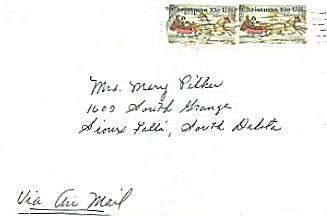 Christmas 10c U.S. Christmas 10c U.S.
Mrs. Mary Pilker
1609 South Grange
Sioux Falls, South Dakota
Via Air Mail